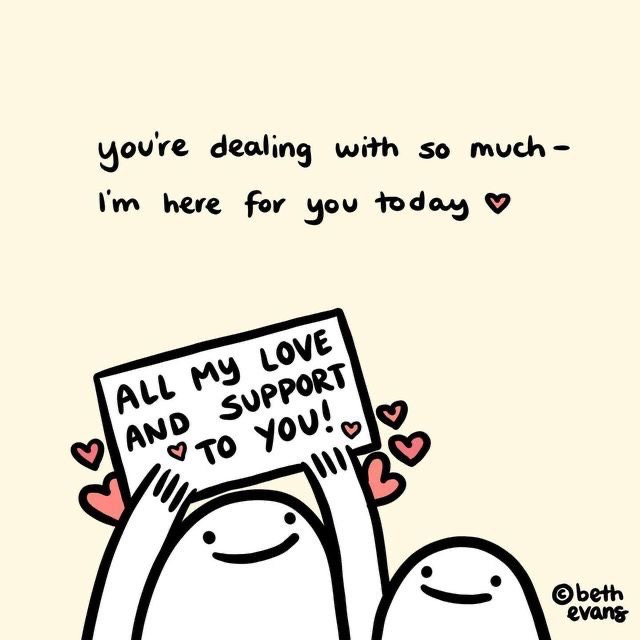 you're dealing with so much –
I'm here for you today ♥
ALL MY LOVE
AND SUPPORT
TO YOU!
© beth
evans